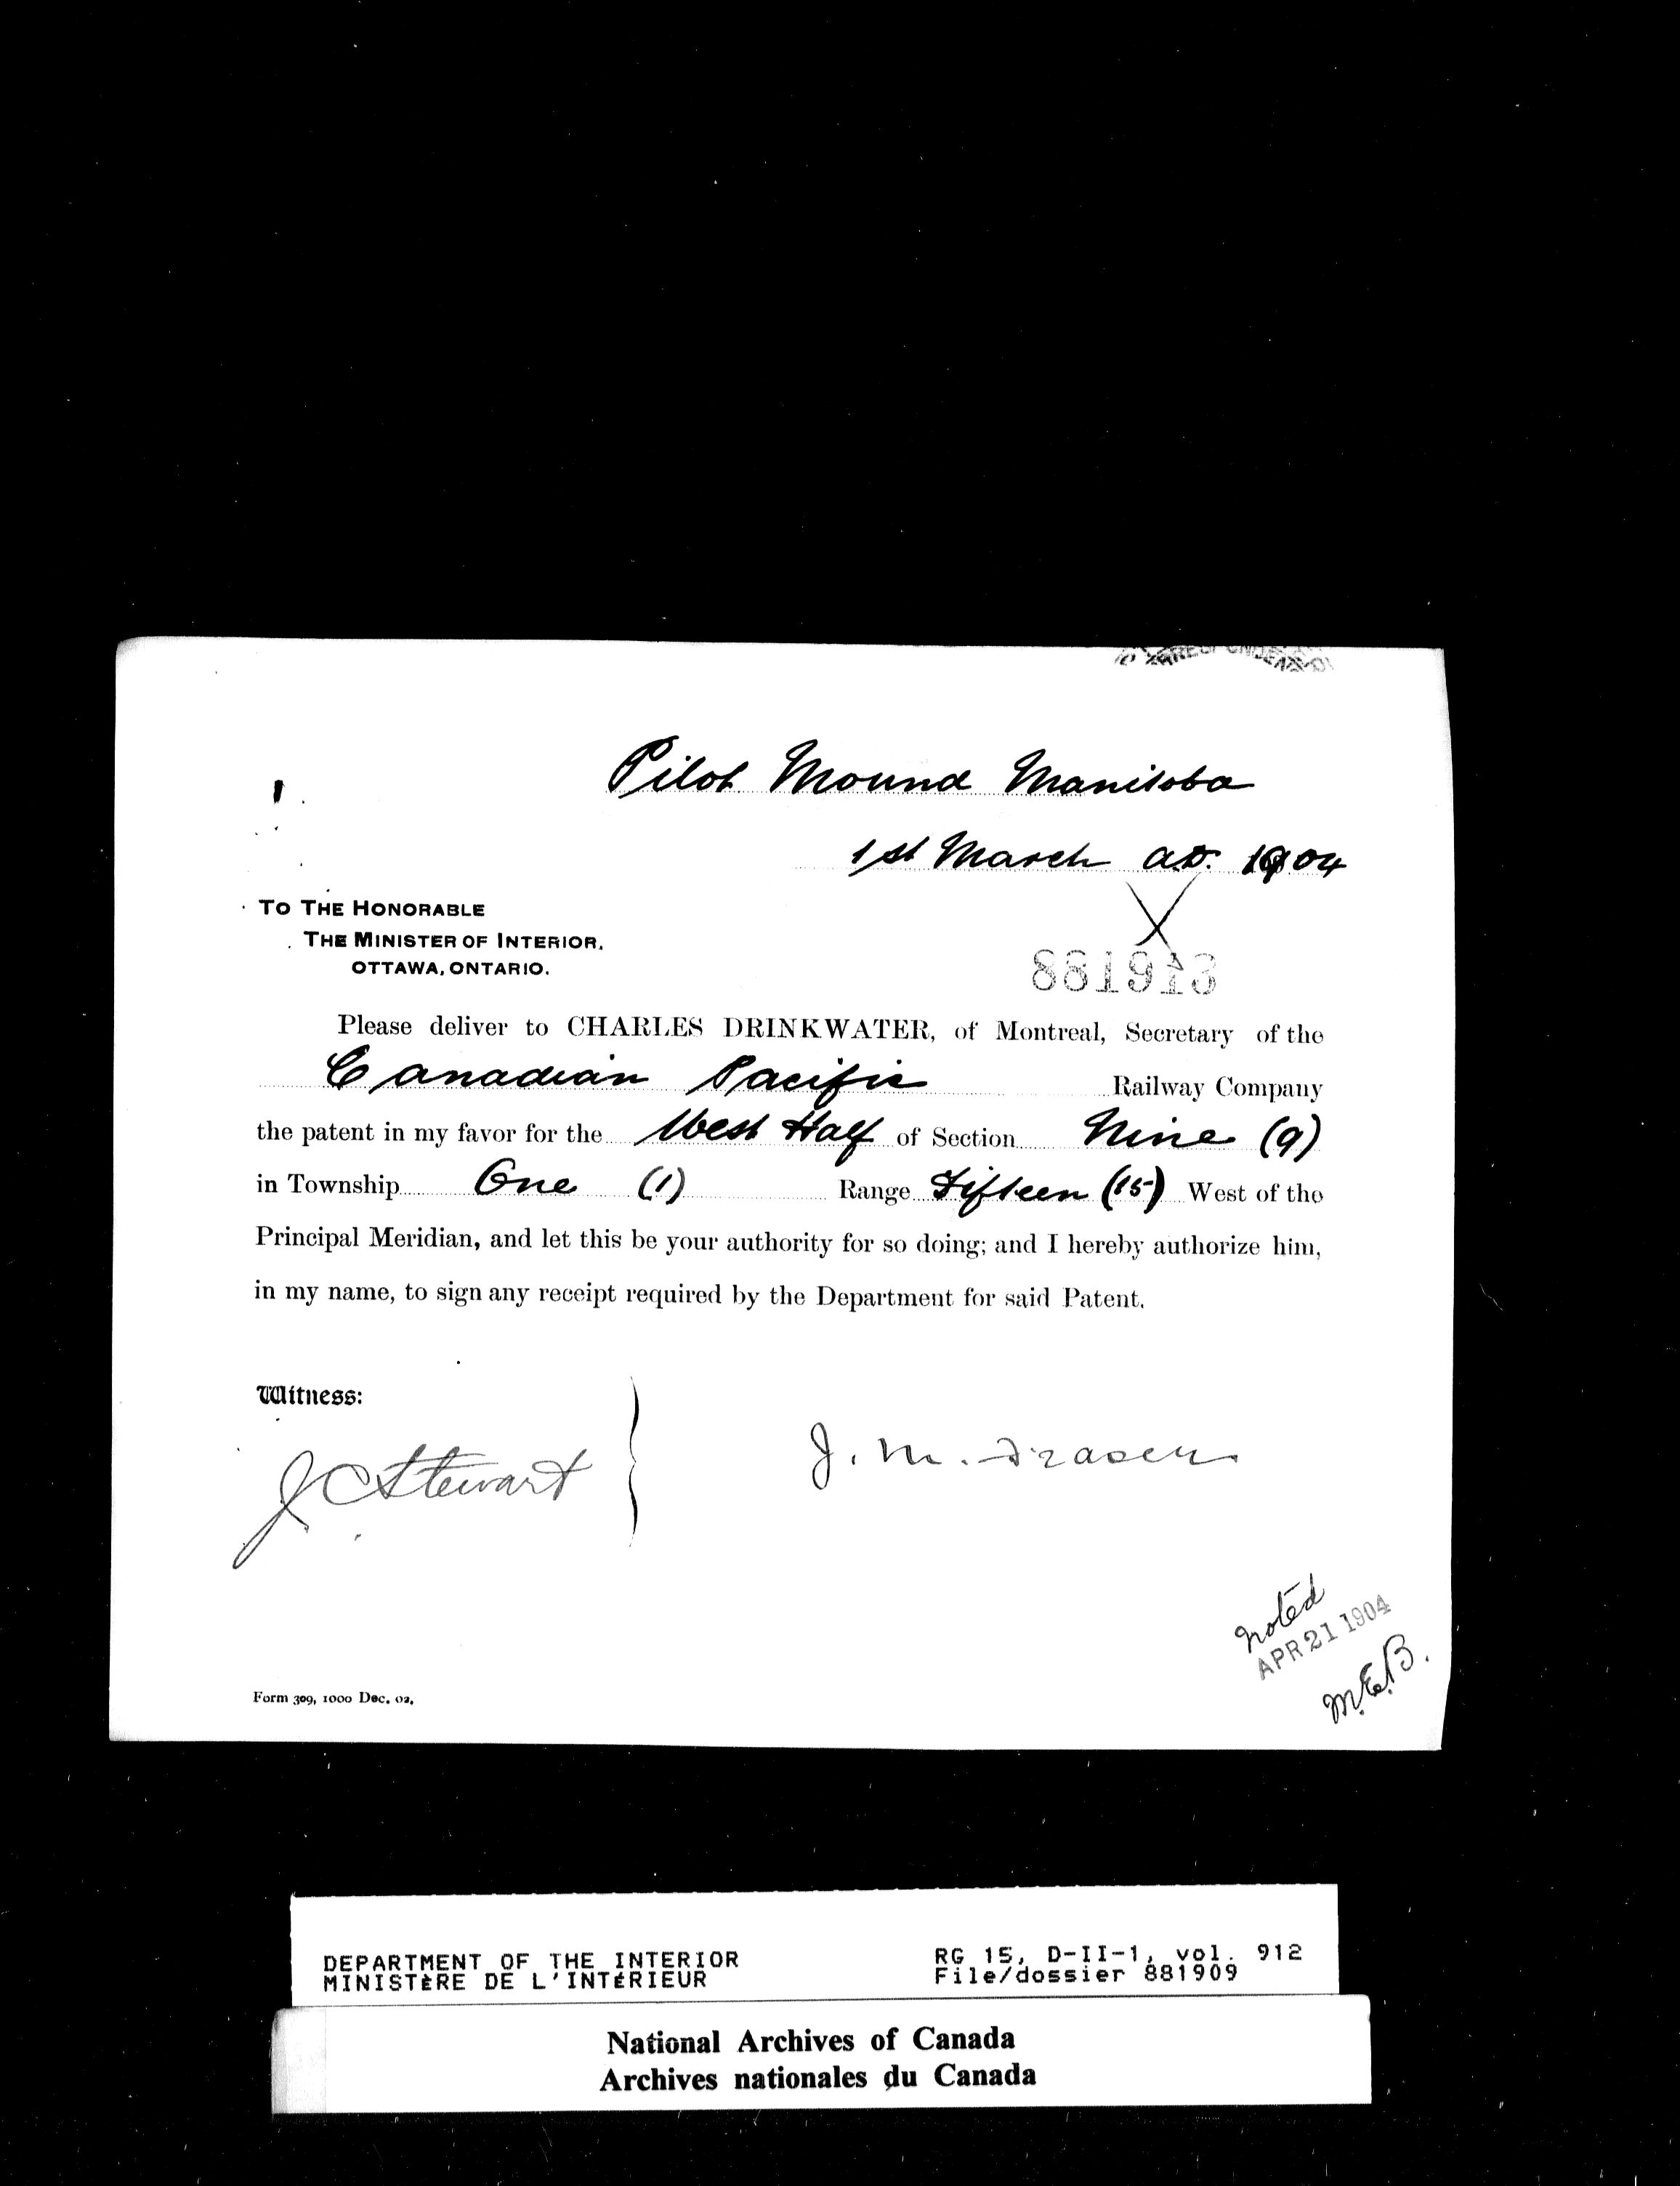 Pilot Mound Manitoba
1st March A.D. 1904
TO THE HONORABLE
THE MINISTER OF INTERIOR,
OTTAWA, ONTARIO.
881913
Please deliver to CHARLES DRINKWATER, of Montreal, Secretary of the
Canadian Pacific Railway Company
the patent in my favor for the West Half of Section Nine (9)
in Township One (1) Range Fifteen (15) West of the
Principal Meridian, and let this be your authority for so doing; and I hereby authorize him,
in my name, to sign any receipt required by the Department for said Patent.
Witness:
J C Stewart
J. M. Fraser
noted
APR 21 1904
M.E.B.
Form 309, 1000 Dec. 02.
DEPARTMENT OF THE INTERIOR RG 15, D-II-1, vol. 912
MINISTÈRE DE L'INTÉRIEUR File/dossier 881909
National Archives of Canada
Archives nationales du Canada